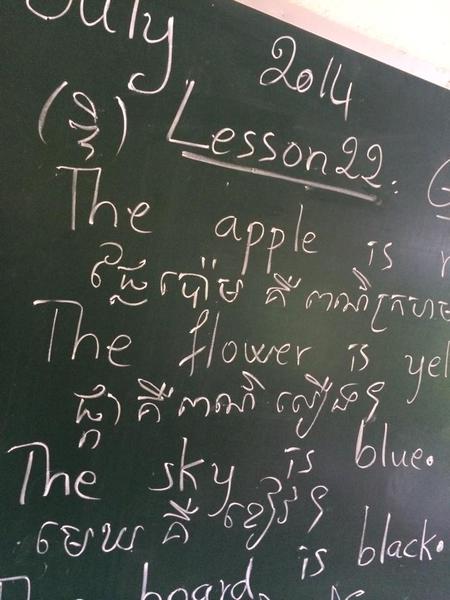 July 2014
Lesson 22.
The apple is
ផ្លែប៉ោម គឺ ពណ៌ក្រហម
The flower is yel
ផ្កា គឺ ពណ៌ លឿង។
The sky is blue.
មេឃ គឺ ខៀវ។
board is black.